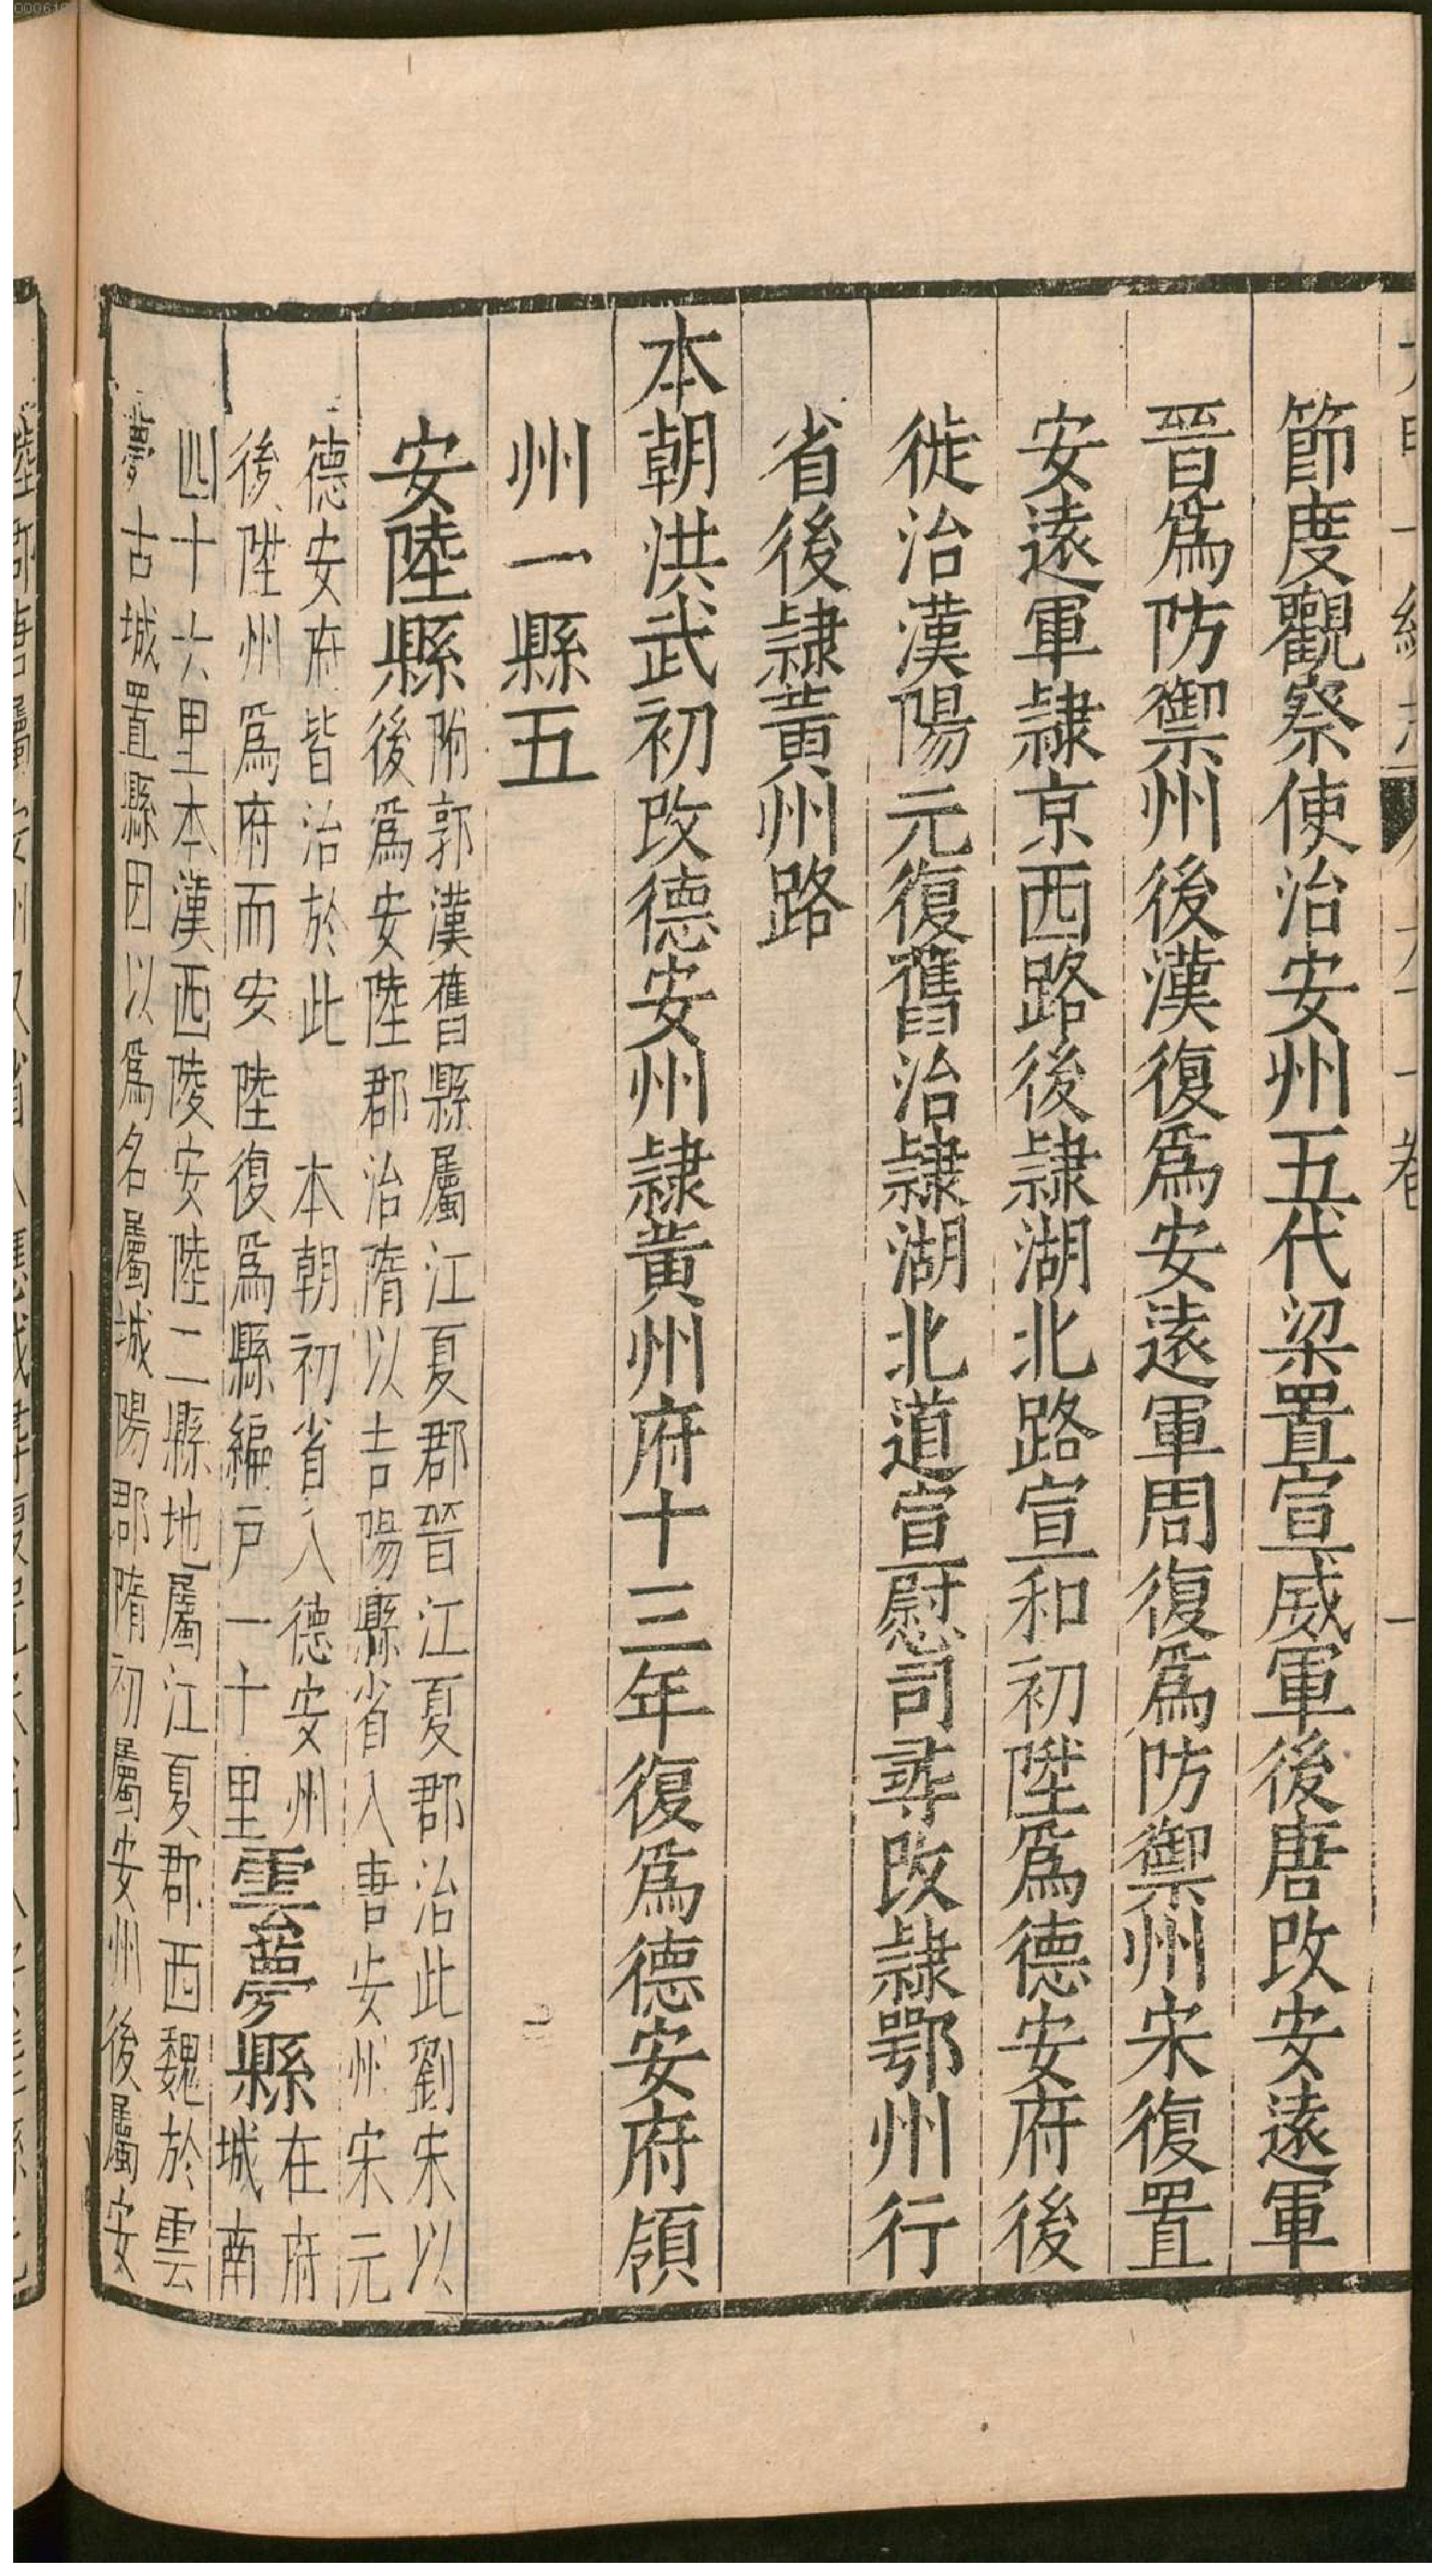 節度觀察使治安州五代梁置宣威軍後唐改安遠軍
晉爲防禦州後漢復爲安遠軍周復爲防禦州宋復置
安遠軍隷京西路後隷湖北路宣和初陞爲德安府後
徙治漢陽元復舊治隷湖北道宣慰司尋改隷鄂州行
省後隷黃州路
本朝洪武初改德安州隷黃州府十三年復爲德安府領
州一縣五
安陸縣
附郭漢舊縣屬江夏郡晉江夏郡治此劉宋以
後爲安陸郡治隋以吉陽縣省入唐安州宋元
德安府皆治於此 本朝初省入德安州
後陞州爲府而安陸復爲縣編戶一十里
雲夢縣
在府
城南
四十六里本漢西陵安陸二縣地屬江夏郡西魏於雲
夢古城置縣因以爲名屬城陽郡隋初屬安州後屬安